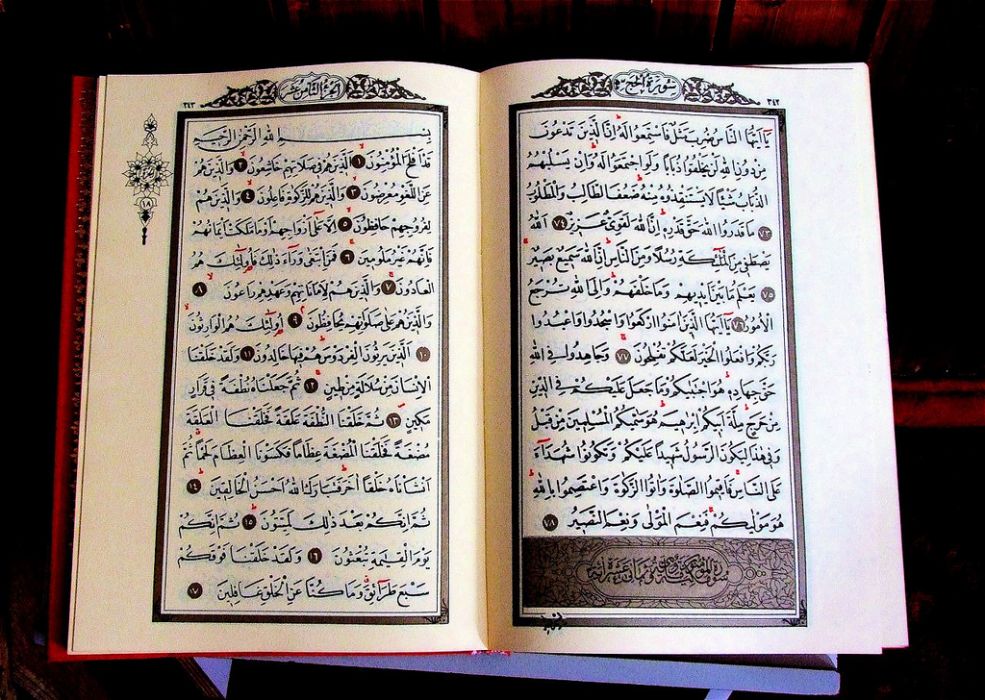 سُورَةُ الحَجّ
٣٤٢
يَآ اَيُّهَا النَّاسُ ضُرِبَ مَثَلٌ فَاسْتَمِعُوا لَهُ اِنَّ الَّذِينَ تَدْعُونَ
مِنْ دُونِ اللهِ لَنْ يَخْلُقُوا ذُبَاباً وَلَوِ اجْتَمَعُوا لَهُ وَاِنْ يَسْلُبْهُمُ
الذُّبَابُ شَيْئاً لَا يَسْتَنْقِذُوهُ مِنْهُ ضَعُفَ الطَّالِبُ وَالْمَطْلُوبُ
٧٣ مَا قَدَرُوا اللهَ حَقَّ قَدْرِهِ اِنَّ اللهَ لَقَوِىٌّ عَزِيزٌ ٧٤ اَللهُ
يَصْطَفِى مِنَ الْمَلٰٓئِكَةِ رُسُلاً وَمِنَ النَّاسِ اِنَّ اللهَ سَمِيعٌ بَصِيرٌ
٧٥ يَعْلَمُ مَا بَيْنَ اَيْدِيهِمْ وَمَا خَلْفَهُمْ وَاِلَى اللهِ تُرْجَعُ
الْاُمُورُ ٧٦ يَآ اَيُّهَا الَّذِينَ اٰمَنُوا ارْكَعُوا وَاسْجُدُوا وَاعْبُدُوا
رَبَّكُمْ وَافْعَلُوا الْخَيْرَ لَعَلَّكُمْ تُفْلِحُونَ ٧٧ وَجَاهِدُوا فِى اللهِ
حَقَّ جِهَادِهِ هُوَ اجْتَبٰيكُمْ وَمَا جَعَلَ عَلَيْكُمْ فِى الدِّينِ
مِنْ حَرَجٍ مِلَّةَ اَبِيكُمْ اِبْرٰهِيمَ هُوَ سَمّٰيكُمُ الْمُسْلِمِينَ مِنْ قَبْلُ
وَفِى هٰذَا لِيَكُونَ الرَّسُولُ شَهِيداً عَلَيْكُمْ وَتَكُونُوا شُهَدَآءَ
عَلَى النَّاسِ فَاَقِيمُوا الصَّلٰوةَ وَاٰتُوا الزَّكٰوةَ وَاعْتَصِمُوا بِاللهِ
هُوَ مَوْلٰيكُمْ فَنِعْمَ الْمَوْلٰى وَنِعْمَ النَّصِيرُ ٧٨
سورة المؤمنون مكية وهي مائة وثماني عشرة آية
الجُزْءُ الثَّامِنُ عَشَرَ
٣٤٣
بِسْمِ اللهِ الرَّحْمٰنِ الرَّحِيمِ
قَدْ اَفْلَحَ الْمُؤْمِنُونَ ١ اَلَّذِينَ هُمْ فِى صَلَاتِهِمْ خَاشِعُونَ ٢ وَالَّذِينَ هُمْ
عَنِ اللَّغْوِ مُعْرِضُونَ ٣ وَالَّذِينَ هُمْ لِلزَّكٰوةِ فَاعِلُونَ ٤ وَالَّذِينَ هُمْ
لِفُرُوجِهِمْ حَافِظُونَ ٥ اِلَّا عَلٰٓى اَزْوَاجِهِمْ اَوْ مَا مَلَكَتْ اَيْمَانُهُمْ
فَاِنَّهُمْ غَيْرُ مَلُومِينَ ٦ فَمَنِ ابْتَغٰى وَرَآءَ ذٰلِكَ فَاُولٰٓئِكَ هُمُ
الْعَادُونَ ٧ وَالَّذِينَ هُمْ لِاَمَانَاتِهِمْ وَعَهْدِهِمْ رَاعُونَ ٨
وَالَّذِينَ هُمْ عَلٰى صَلَوَاتِهِمْ يُحَافِظُونَ ٩ اُولٰٓئِكَ هُمُ الْوَارِثُونَ
١٠ اَلَّذِينَ يَرِثُونَ الْفِرْدَوْسَ هُمْ فِيهَا خَالِدُونَ ١١ وَلَقَدْ خَلَقْنَا
الْاِنْسَانَ مِنْ سُلَالَةٍ مِنْ طِينٍ ١٢ ثُمَّ جَعَلْنَاهُ نُطْفَةً فِى قَرَارٍ
مَكِينٍ ١٣ ثُمَّ خَلَقْنَا النُّطْفَةَ عَلَقَةً فَخَلَقْنَا الْعَلَقَةَ
مُضْغَةً فَخَلَقْنَا الْمُضْغَةَ عِظَاماً فَكَسَوْنَا الْعِظَامَ لَحْماً ثُمَّ
اَنْشَاْنَاهُ خَلْقاً اٰخَرَ فَتَبَارَكَ اللهُ اَحْسَنُ الْخَالِقِينَ ١٤
ثُمَّ اِنَّكُمْ بَعْدَ ذٰلِكَ لَمَيِّتُونَ ١٥ ثُمَّ اِنَّكُمْ
يَوْمَ الْقِيٰمَةِ تُبْعَثُونَ ١٦ وَلَقَدْ خَلَقْنَا فَوْقَكُمْ
سَبْعَ طَرَآئِقَ وَمَا كُنَّا عَنِ الْخَلْقِ غَافِلِينَ ١٧
١٨